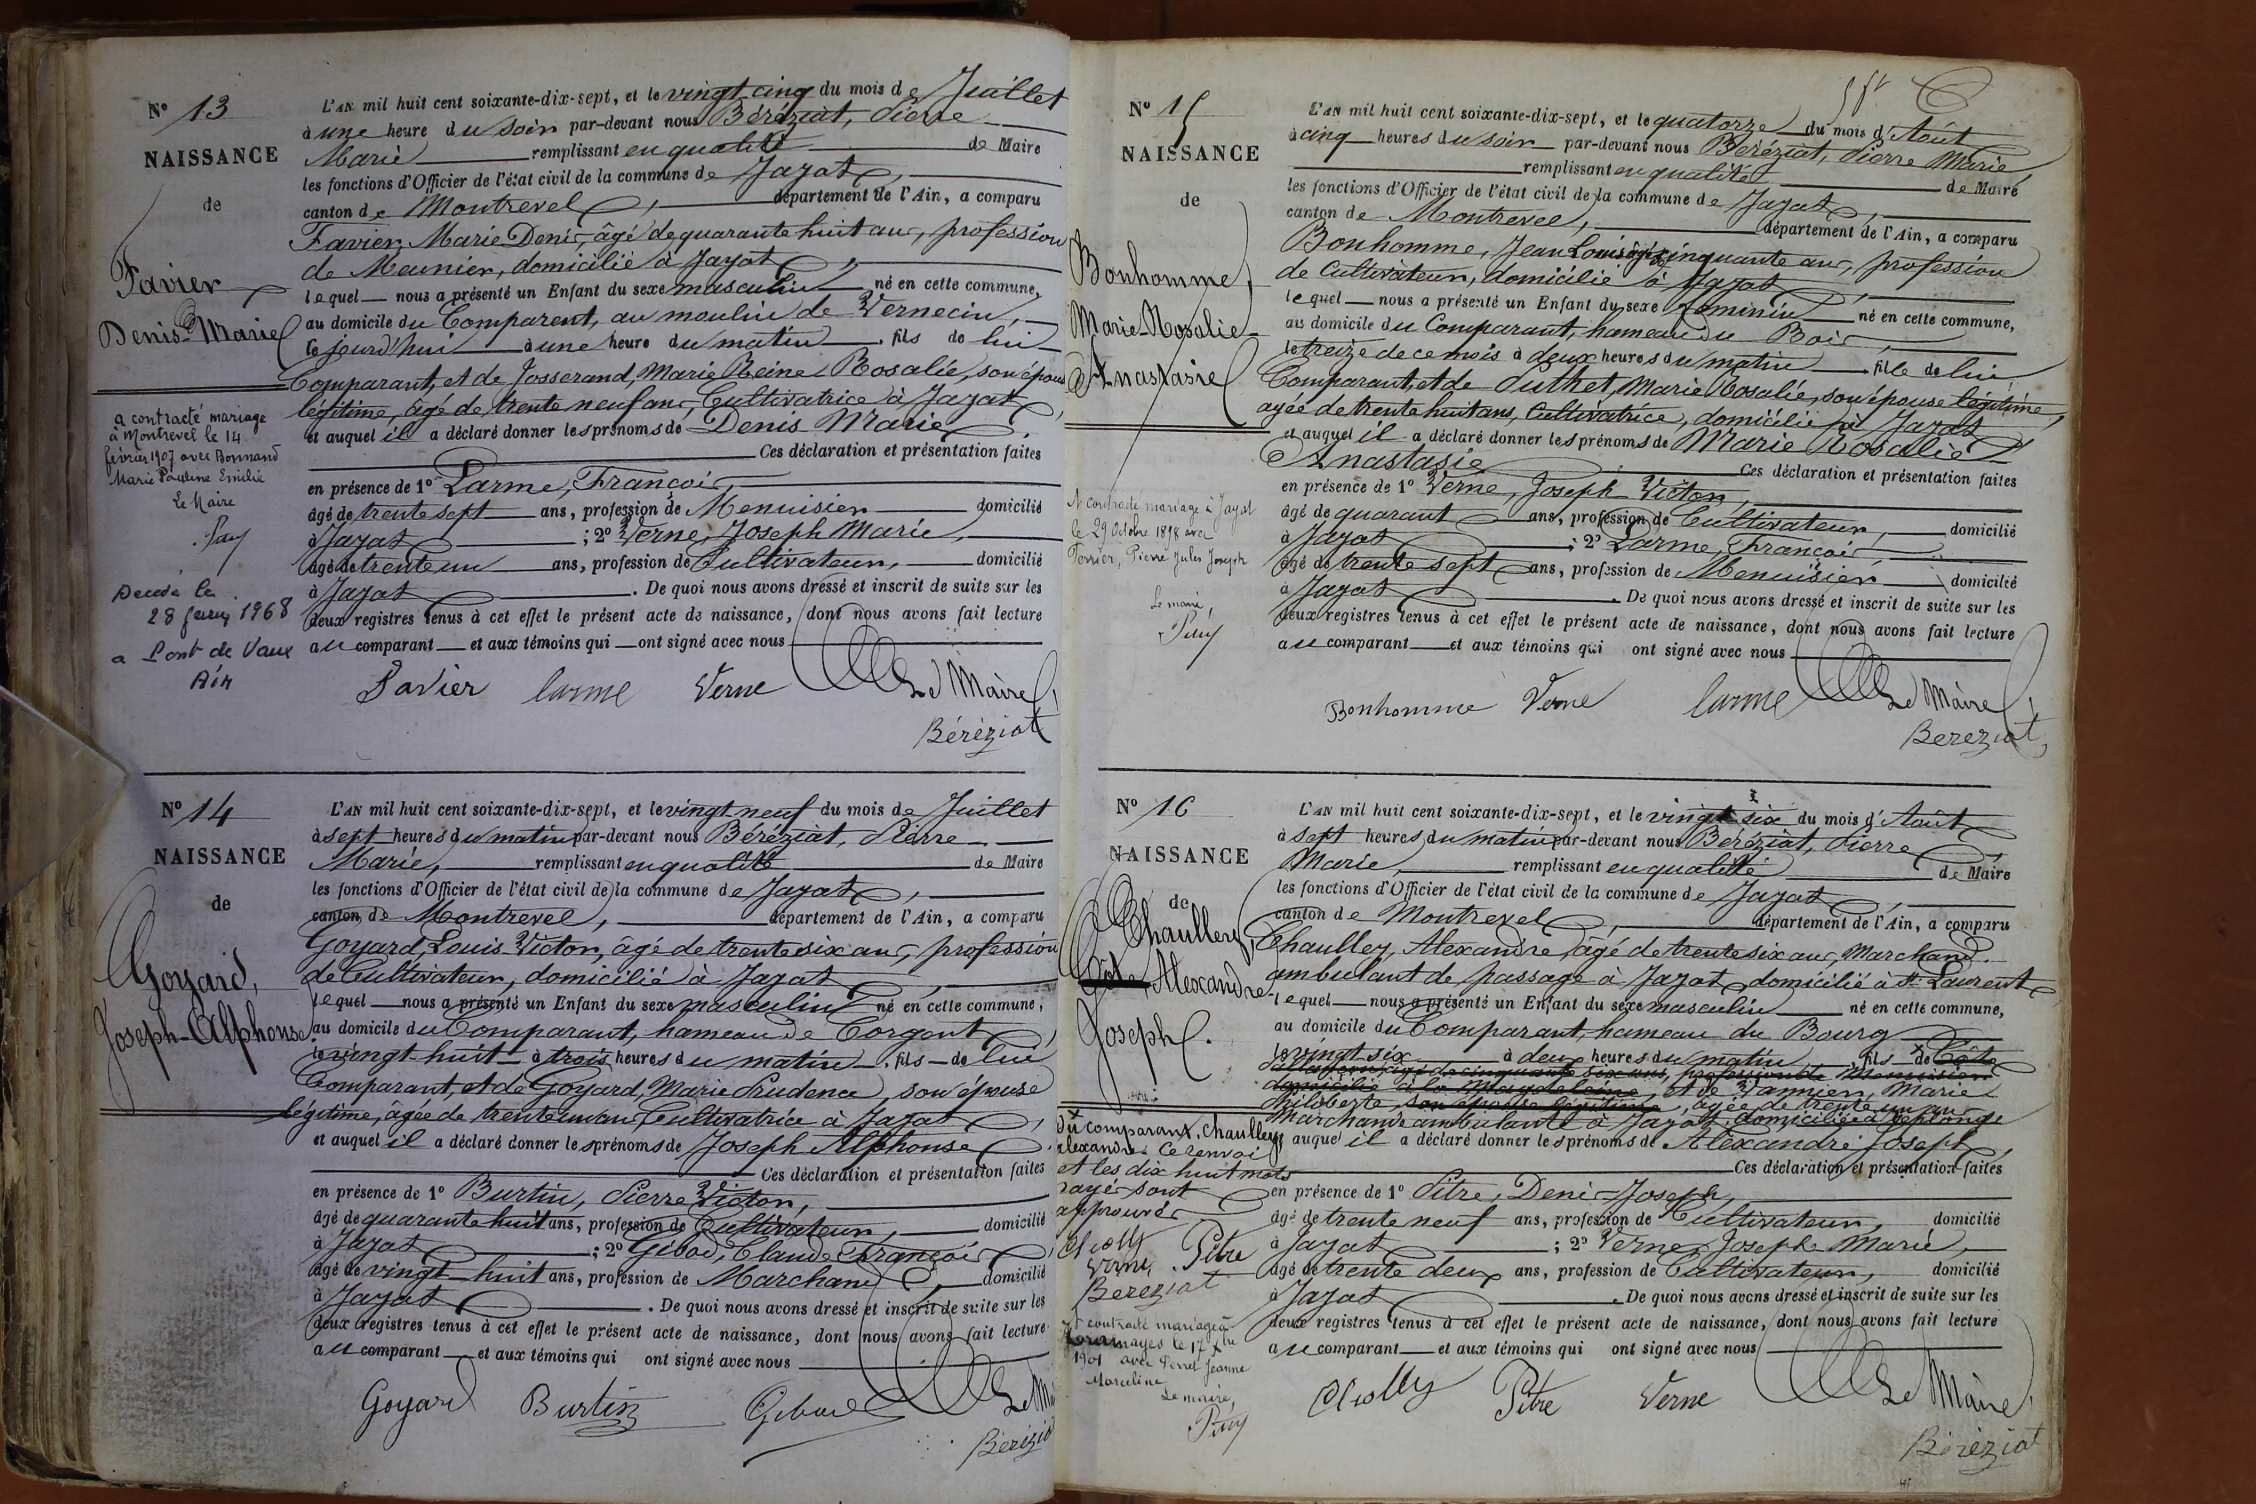 N° 13
NAISSANCE
de
Favier
Denis-Marie
a contracté mariage
à Montrevel le 14
février 1907 avec Bonnand
Marie Pauline Emilie
Le Maire
Puy
Décédé le
28 1968
a Pont de Vaux
Ain
L'AN mil huit cent soixante-dix-sept, et le vingt-cinq du mois de Juillet
à une heure du soir par-devant nous Béréziat, Pierre
Marie remplissant en qualité de Maire
les fonctions d'Officier de l'état civil de la commune de Jayat,
canton de Montrevel, département de l'Ain, a comparu
Favier, Marie Denis, âgé de quarante huit ans, profession
de Meunier, domicilié à Jayat,
lequel nous a présenté un Enfant du sexe masculin né en cette commune,
au domicile du Comparent, au moulin de Vernecin,
ce jourd'hui à une heure du matin, fils de lui
Comparant, et de Josserand, Marie Reine Rosalie, son épouse
légitime, âgé de trente neuf ans, Cultivatrice à Jayat,
et auquel il a déclaré donner les prénoms de Denis Marie,
Ces déclaration et présentation faites
en présence de 1° Larme, François,
âgé de trente sept ans, profession de Menuisier domicilié
à Jayat ; 2° Verne, Joseph Marie,
âgé de trente un ans, profession de Cultivateur, domicilié
à Jayat. De quoi nous avons dressé et inscrit de suite sur les
deux registres tenus à cet effet le présent acte de naissance, dont nous avons fait lecture
au comparant et aux témoins qui ont signé avec nous
Favier larme Verne Le Maire
Béréziat
N° 14
NAISSANCE
de
Goyard,
Joseph-Alphonse
L'AN mil huit cent soixante-dix-sept, et le vingt neuf du mois de Juillet
à sept heures du matin par-devant nous Béréziat, Pierre
Marie, remplissant en qualité de Maire
les fonctions d'Officier de l'état civil de la commune de Jayat,
canton de Montrevel, département de l'Ain, a comparu
Goyard, Louis Victor, âgé de trente six ans, profession
de Cultivateur, domicilié à Jayat,
lequel nous a présenté un Enfant du sexe masculin né en cette commune,
au domicile du Comparant, hameau de Corgent,
le vingt-huit à trois heures du matin. fils de lui
Comparant, et de Goyard, Marie Prudence, son épouse
légitime, âgée de trente un ans, Cultivatrice à Jayat,
et auquel il a déclaré donner les prénoms de Joseph Alphonse
Ces déclaration et présentation faites
en présence de 1° Burtin, Pierre Victor,
âgé de quarante huit ans, profession de Cultivateur, domicilié
à Jayat ; 2° Gibod, Claude François,
âgé de vingt-huit ans, profession de Marchand, domicilié
à Jayat. De quoi nous avons dressé et inscrit de suite sur les
deux registres tenus à cet effet le présent acte de naissance, dont nous avons fait lecture
au comparant et aux témoins qui ont signé avec nous
Goyard Burtin Gibod Le Maire
Béréziat
N° 15
NAISSANCE
de
Bonhomme,
Marie-Rosalie
Anastasie
A contracté mariage à Jayat
le 29 Octobre 1898 avec
Perrier, Pierre Jules Joseph
Le maire,
Puy
L'AN mil huit cent soixante-dix-sept, et le quatorze du mois d'Août
à cinq heures du soir par-devant nous Béréziat, Pierre Marie,
remplissant en qualité de Maire
les fonctions d'Officier de l'état civil de la commune de Jayat,
canton de Montrevel, département de l'Ain, a comparu
Bonhomme, Jean Louis âgé de cinquante ans, profession
de Cultivateur, domicilié à Jayat,
lequel nous a présenté un Enfant du sexe feminin né en cette commune,
au domicile du Comparant, hameau du Bois,
le treize de ce mois à deux heures du matin. fille de lui
Comparant, et de Puthet, Marie Rosalie, son épouse légitime,
agée de trente huit ans, Cultivatrice, domiciliée à Jayat
et auquel il a déclaré donner les prénoms de Marie Rosalie
Anastasie Ces déclaration et présentation faites
en présence de 1° Verne, Joseph Victor,
âgé de quarant ans, profession de Cultivateur, domicilié
à Jayat ; 2° Larme, François,
âgé de trente sept ans, profession de Menuisier domicilié
à Jayat. De quoi nous avons dressé et inscrit de suite sur les
deux registres tenus à cet effet le présent acte de naissance, dont nous avons fait lecture
au comparant et aux témoins qui ont signé avec nous
Bonhomme Verne larme Le Maire
Béréziat
N° 16
NAISSANCE
de
Chaulley,
Alexandre
Joseph.
du comparant, Chaulley
alexandre. Ce renvoi
et les dix huit mots
rayés sont
approuvés
Cholly Pitre
Verne
Béréziat
A contracté mariage à
le 17 Xbre
1901 avec Perret Jeanne
Marceline
Le maire,
Puy
L'AN mil huit cent soixante-dix-sept, et le vingt six du mois d'Août
à sept heures du matin par-devant nous Béréziat, Pierre
Marie, remplissant en qualité de Maire
les fonctions d'Officier de l'état civil de la commune de Jayat,
canton de Montrevel, département de l'Ain, a comparu
Chaulley, Alexandre, âgé de trente six ans, Marchand
ambulant de passage à Jayat, domicilié à St Laurent
lequel nous a présenté un Enfant du sexe masculin né en cette commune,
au domicile du Comparant, hameau du Bourg
le vingt six à deux heures du matin, fils de Côte
âgé de cinquante six ans, profession de Menuisier
domicilié à la Magdeleine, et de Vannier, Marie
Philiberte, son épouse légitime, agée de trente un ans
Marchande ambulante à Jayat, domiciliée à Replonge
auquel il a déclaré donner les prénoms de Alexandre Joseph,
Ces déclaration et présentation faites
en présence de 1° Pitre, Denis Joseph,
âgé de trente neuf ans, profession de Cultivateur, domicilié
à Jayat ; 2° Verne, Joseph Marie,
âgé de trente deux ans, profession de Cultivateur, domicilié
à Jayat. De quoi nous avons dressé et inscrit de suite sur les
deux registres tenus à cet effet le présent acte de naissance, dont nous avons fait lecture
au comparant et aux témoins qui ont signé avec nous
Cholly Pitre Verne Le Maire
Béréziat